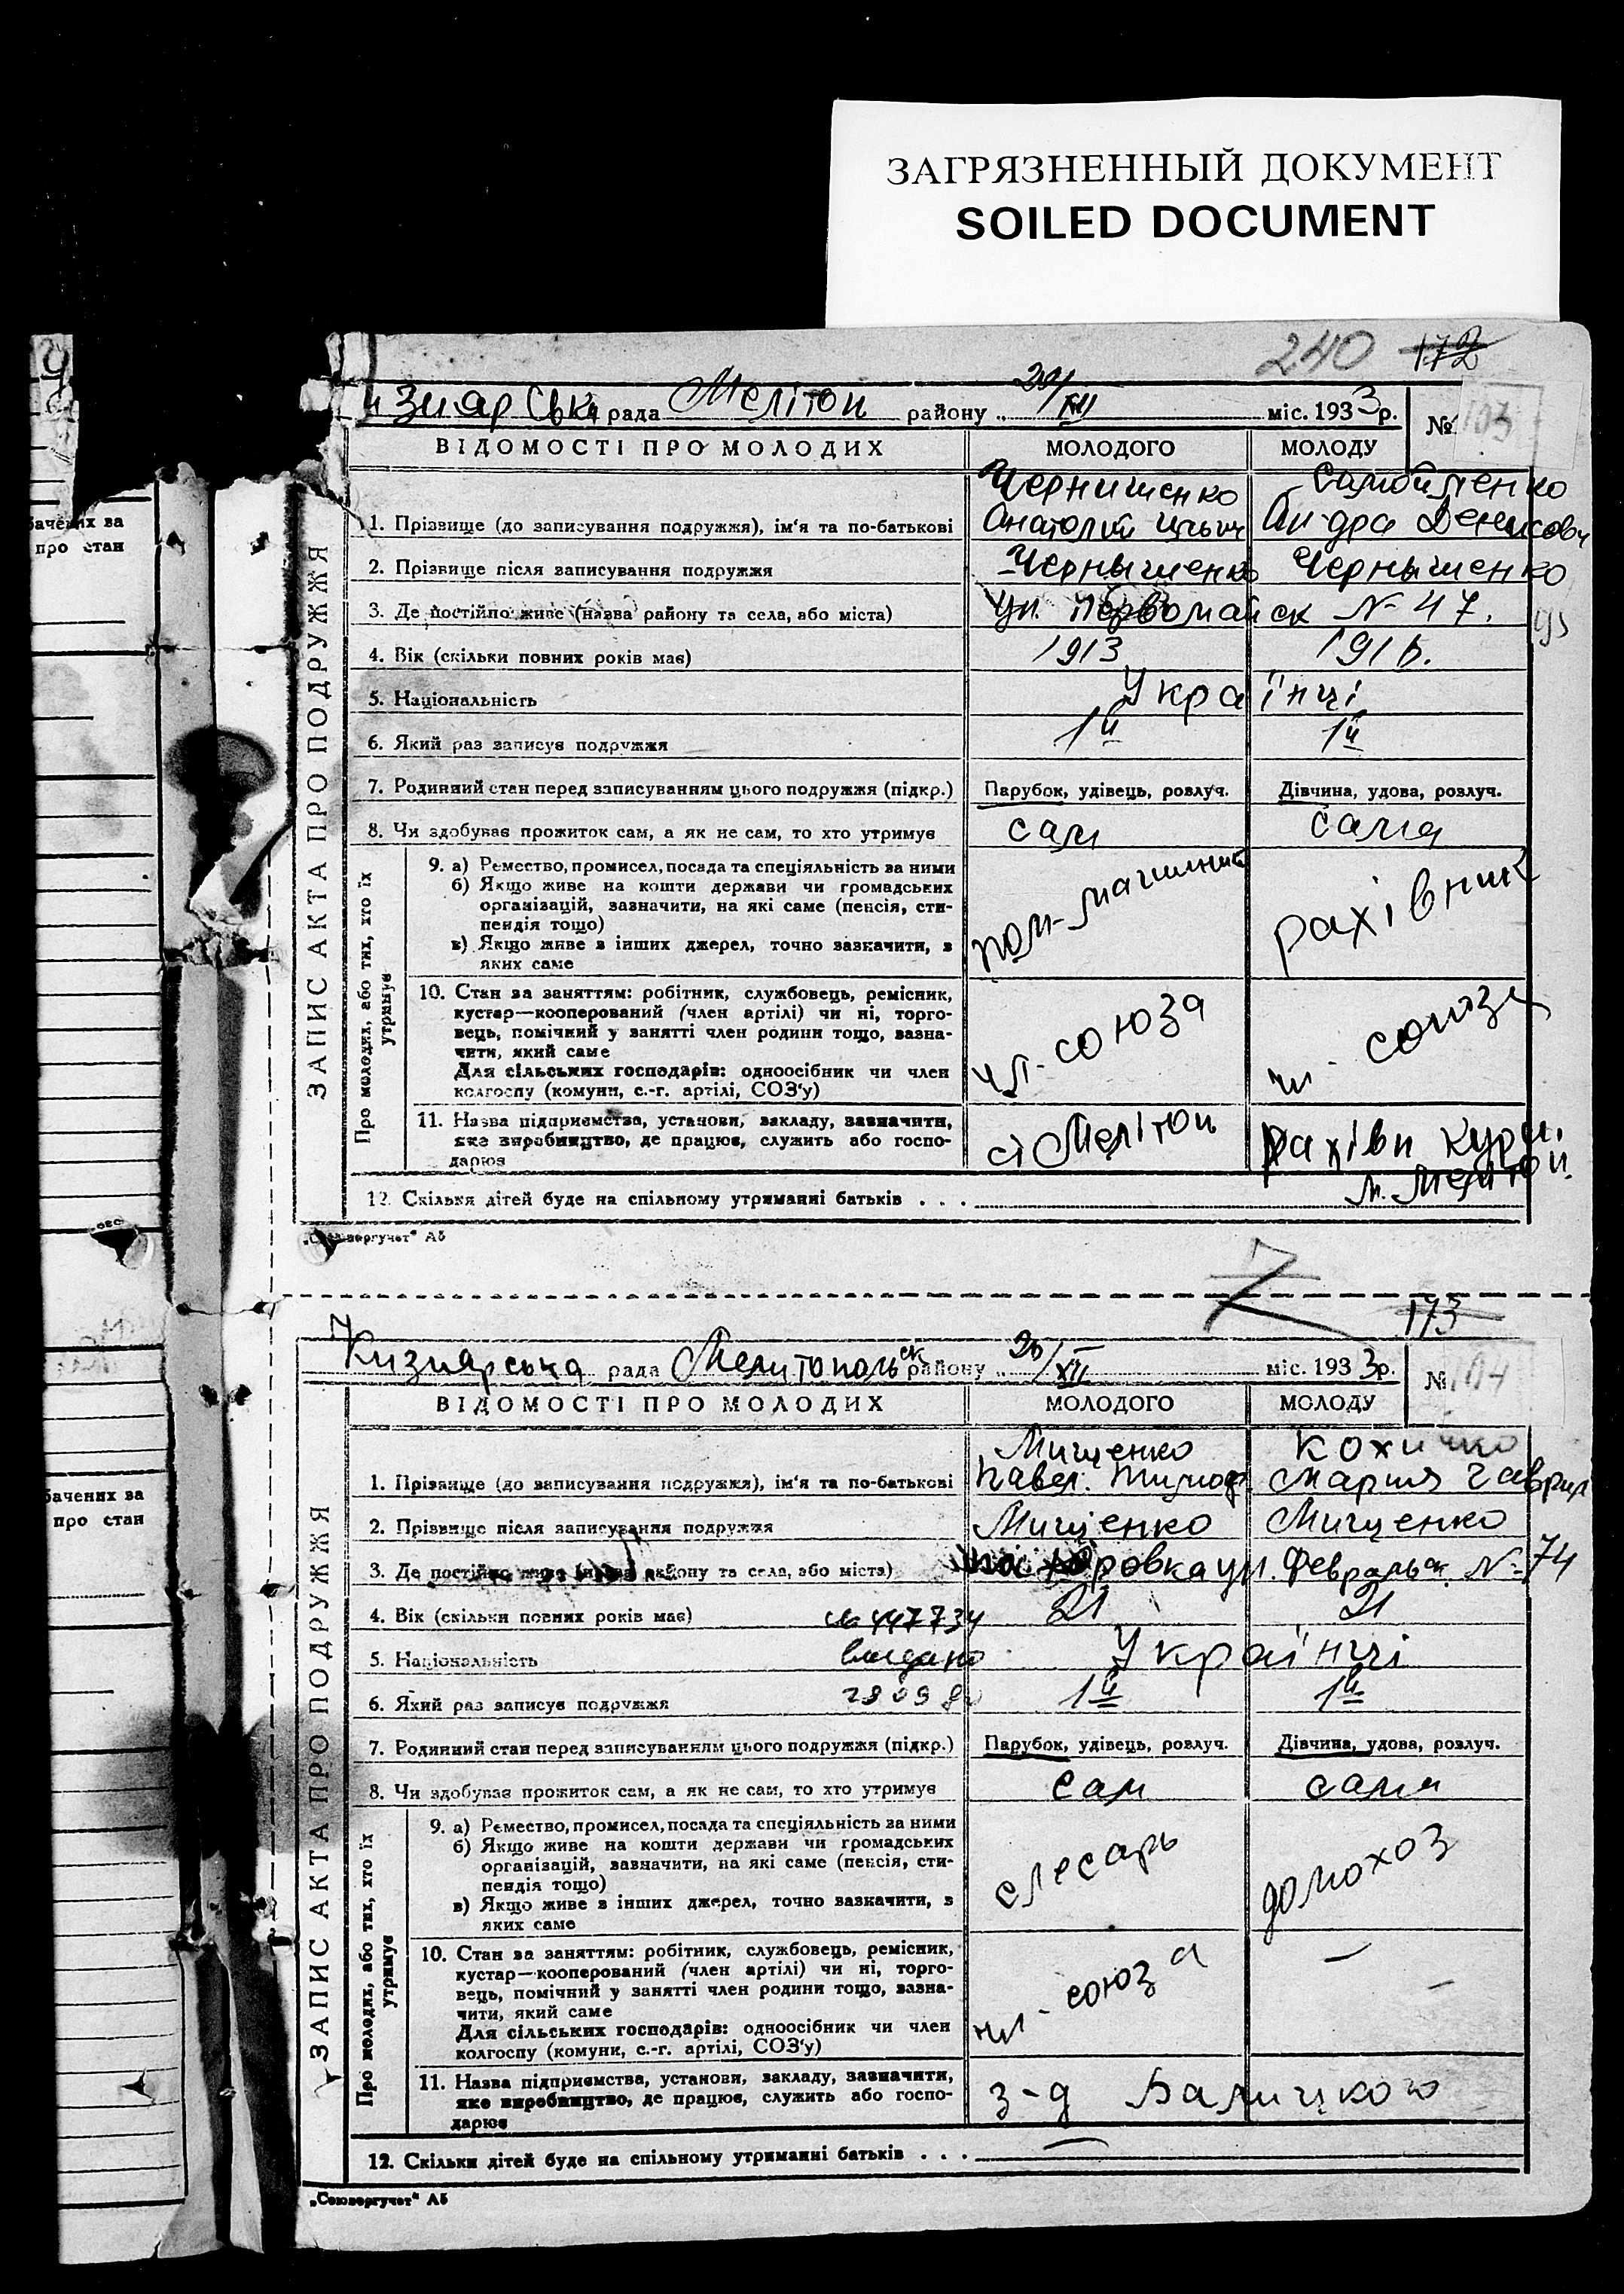 ЗАГРЯЗНЕННЫЙ ДОКУМЕНТ
SOILED DOCUMENT
240 172
рада Мелітоп району " /XII міс. 1933 р. № 103
ВІДОМОСТІ ПРО МОЛОДИХ МОЛОДОГО МОЛОДУ
ЗАПИС АКТА ПРО ПОДРУЖЖЯ
Чернишенко Самойленко
1. Прізвище (до записування подружжя), ім'я та по-батькові Анатолий Денисовн
2. Прізвище після записування подружжя Чернышенко Чернышенко
3. Де постійно живе (назва району та села, або міста) ул. Первомайск № 47.
4. Вік (скільки повних років має) 1913 191
5. Національність Українці
6. Який раз записує подружжя 1й 1й
7. Родинний стан перед записуванням цього подружжя (підкр.) Парубок, удівець, розлуч. Дівчина, удова, розлуч.
8. Чи здобуває прожиток сам, а як не сам, то хто утримує сам сама
Про молодих, або тих, хто їх утримує
9. а) Ремество, промисел, посада та спеціяльність за ними
б) Якщо живе на кошти держави чи громадських
організацій, зазначити, на які саме (пенсія, сти-
пендія тощо)
в) Якщо живе з інших джерел, точно зазначити, з
яких саме
пом-машиніст рахівник
10. Стан за заняттям: робітник, службовець, ремісник,
кустар—кооперований (член артілі) чи ні, торго-
вець, помічний у занятті член родини тощо, зазна-
чити, який саме
Для сільських господарів: одноосібник чи член
колгоспу (комуни, с.-г. артілі, СОЗ'у)
чл-союза чл- союза
11. Назва підприємства, установи, закладу, зазначити,
яке виробництво, де працює, служить або госпо-
дарює
ст Мелітоп рахівн курси.
м. Мелітоп.
12. Скільки дітей буде на спільному утриманні батьків . . .
„Союзоргучет" А5
173
Кизиярська рада Мелитопольск району " /XII міс. 1933 р. № 104
ВІДОМОСТІ ПРО МОЛОДИХ МОЛОДОГО МОЛОДУ
ЗАПИС АКТА ПРО ПОДРУЖЖЯ
Мищенко
1. Прізвище (до записування подружжя), ім'я та по-батькові Павел. Тимоф. Мария Гаврил
2. Прізвище після записування подружжя Мищенко Мищенко
3. Де постійно живе (назва району та села, або міста) ул. Февральск. № 74
4. Вік (скільки повних років має) № 447734 21 21
5. Національність выдано Українці
6. Який раз записує подружжя 1й 1й
7. Родинний стан перед записуванням цього подружжя (підкр.) Парубок, удівець, розлуч. Дівчина, удова, розлуч.
8. Чи здобуває прожиток сам, а як не сам, то хто утримує сам сама
Про молодих, або тих, хто їх утримує
9. а) Ремество, промисел, посада та спеціяльність за ними
б) Якщо живе на кошти держави чи громадських
організацій, зазначити, на які саме (пенсія, сти-
пендія тощо)
в) Якщо живе з інших джерел, точно зазначити, з
яких саме
слесарь домохоз
10. Стан за заняттям: робітник, службовець, ремісник,
кустар—кооперований (член артілі) чи ні, торго-
вець, помічний у занятті член родини тощо, зазна-
чити, який саме
Для сільських господарів: одноосібник чи член
колгоспу (комуни, с.-г. артілі, СОЗ'у)
чл- союза — —
11. Назва підприємства, установи, закладу, зазначити,
яке виробництво, де працює, служить або госпо-
дарює
з-д Балицкого
12. Скільки дітей буде на спільному утриманні батьків . . . —
„Союзоргучет" А5